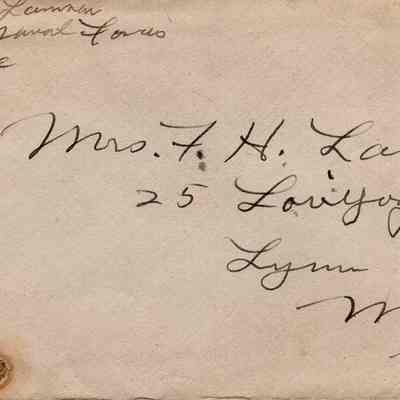 Lamner
Naval Forces
Mrs. F. H. La
25 Lovejoy
Lynn
M